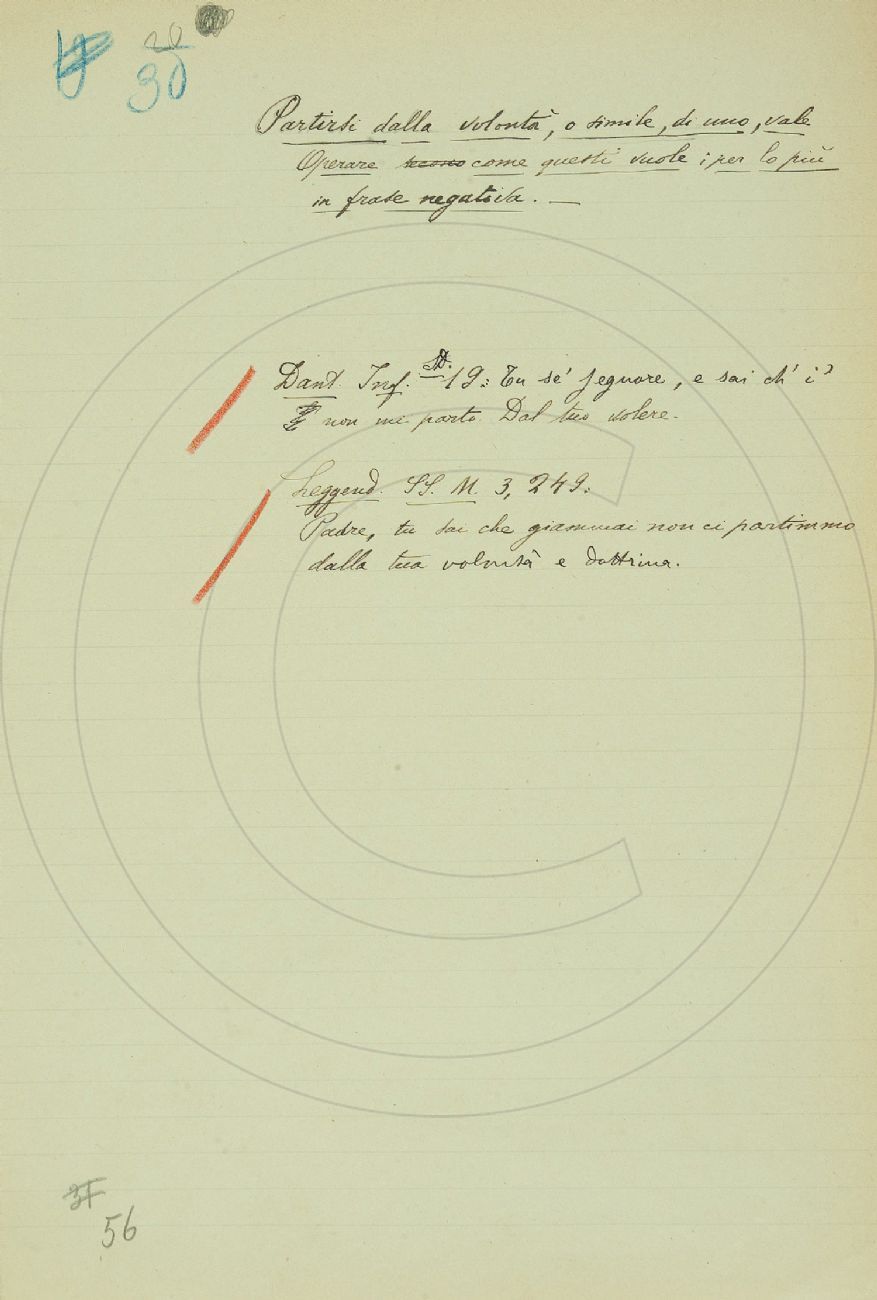 20
30
Partirsi dalla volontà, o simile, di uno, vale
Operare come questi vuole; per lo più
in frase negativa. —
Dant. Inf. 19: Tu se' segnore, e sai ch' i'
non me parto Dal tuo volere.
Leggend. SS. M. 3, 249:
Padre, tu sai che giammai non ci partimmo
dalla tua volontà e dottrina.
56